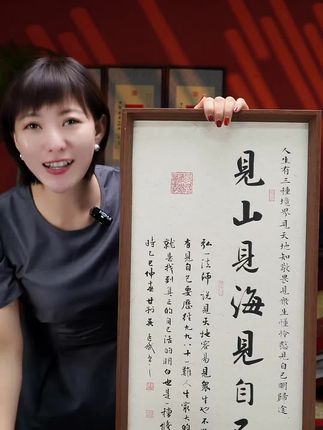 人生有三種境界見天地知敬畏見衆生懂怜憨見自己明歸途
見山見海見自己
弘一法師說見天地容易見衆生也不
有見自己要歷經九九八十一難人生最大的
就是找到真正的自己活的明白也是一種
時乙巳仲春